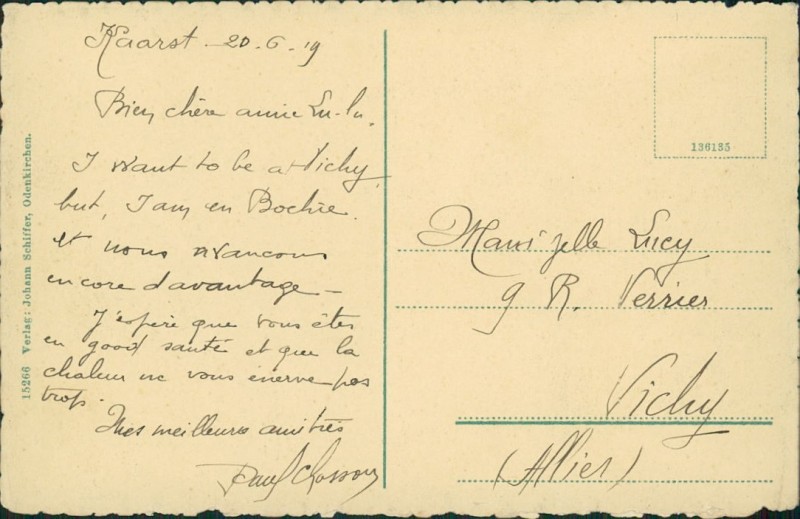 Kaarst - 20-6-19
Bien chère amie Lu-lu,
I want to be at Vichy,
but, I am en Bochie.
et nous avançons
encore davantage -
J'espère que vous êtes
en good santé et que la
chaleur ne vous énerve pas
trop.
Mes meilleures amitiés
Paul
15266 Verlag: Johann Schiffer, Odenkirchen.
136135
Mam'zelle Lucy
9 R. Verrier
Vichy
(Allier)